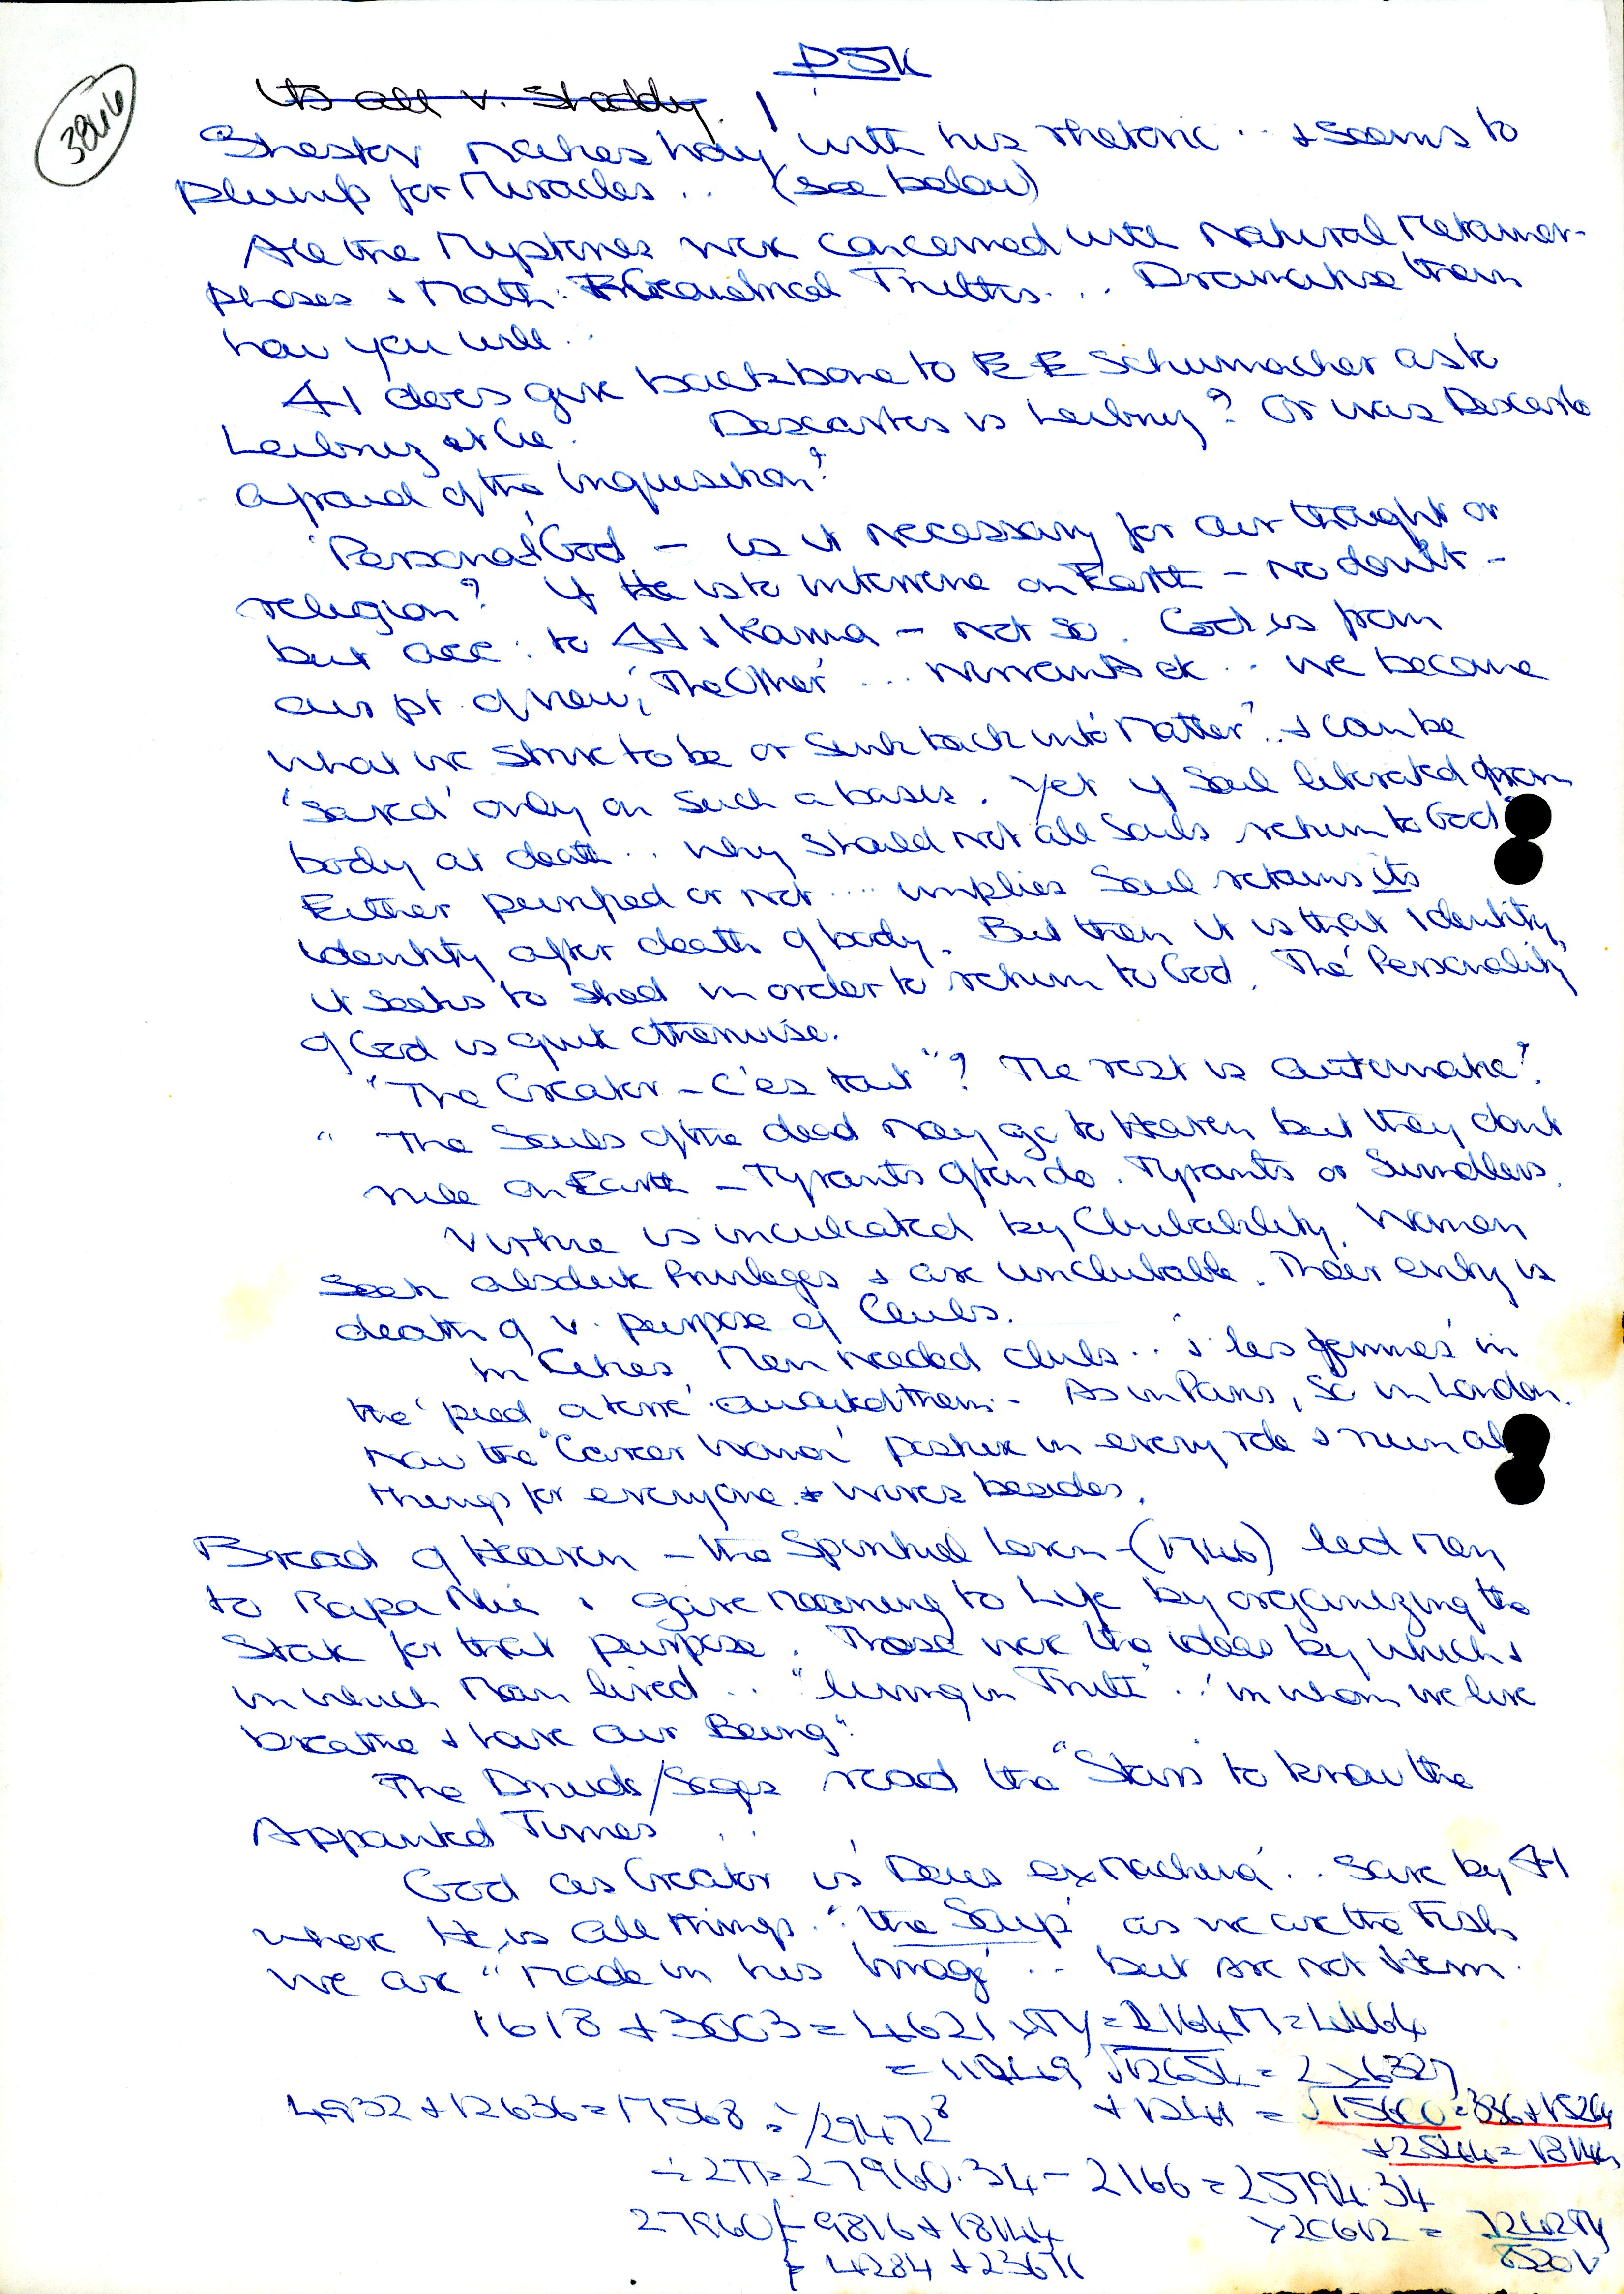 DSK
3846
Its all v. Shoddy.
Shestov makes hay with his rhetoric .. + seems to
plump for Miracles .. (see below)
All the Mysteries were concerned with Natural Metamor-
phoses + Math: Truths ... Dramatise them
how you will ..
A1 does give backbone to E E Schumacher as to
Leibniz et Cie. Descartes vs Leibniz? Or was Descartes
afraid of the Inquisition?
'Personal' God – is it necessary for our thought or
religion? If He is to intervene on Earth – no doubt –
but acc: to A1 + Karma – not so. God is from
our pt. of view, 'The Other' ... etc .. we become
what we strive to be or sink back into 'Matter' .. + can be
'saved' only on such a basis. Yet if Soul liberated from
body at death .. why should not all Souls return to God
Either purified or not .... implies Soul retains its
identity after death of body. But then it is that identity
it seeks to shed in order to return to God. The 'Personality'
of God is quite otherwise.
"The Creator – c'es tout"? The rest is automatic?
" The Souls of the dead may go to Heaven but they dont
rule on Earth – Tyrants often do. Tyrants or Swindlers.
Virtue is inculcated by Clubability. Women
seek absolute Privileges + are unclubable. Their entry is
death of v. purpose of Clubs.
In Cities, Men needed clubs .. + 'les femmes' in
the 'pied a terre' awaited them – As in Paris, so in London.
Now the "Career Woman' in every role + ruin all
things for everyone + wives besides.
Bread of Heaven – the Spiritual Leaven – (1746) led Men
to Rapa Nui + gave meaning to Life by organizing the
State for that purpose. These were the ideas by which +
in which Man lived .. "living in Truth" .. 'in whom we live
breathe + have our Being".
The Druids/Sages read the "Stars to know the
Appointed Times ..
God as Creator is 'Deus ex Machina' .. save by A1
where He is all things .. 'the Soup' as we are the Fish
We are "Made in his Image' .. but are not Him.
1618 + 3003 = 4621
4932 + 12636 = 17568
÷ 2π = 27960.34 – 2166 = 25794.34
27960 9816 + 18144
= 4284 + 23676